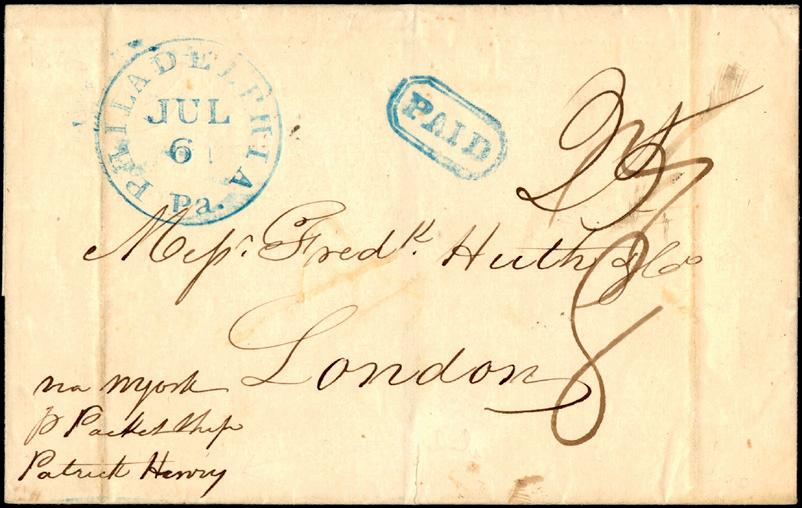 PHILADELPHIA Pa.
JUL
6
PAID
25
Messrs. Fredk. Huth & Co
London
via NYork
p Packet Ship
Patrick Henry